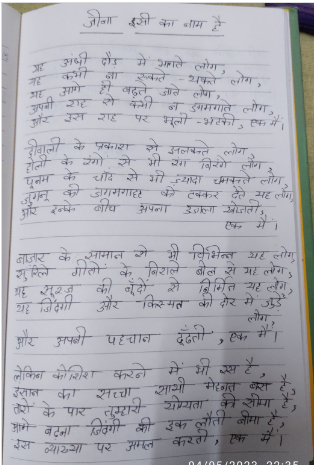 जीना इसी का नाम है
यह अंधी दौड़ में भागते लोग,
यह कभी ना रुकते - थकते लोग,
यह आगे ही बढ़ते जाते लोग,
अपनी राह से कभी न डगमगाते लोग,
और इस राह पर भूली-भटकी, एक मैं।
दीवाली के प्रकाश से झलकते लोग
होली के रंगों से भी रंग बिरंगे लोग,
पूनम के चाँद से भी ज्यादा चमकते लोग,
जुगनू की जगमगाहट को टक्कर देते यह लोग,
और इनके बीच अपना उजाला खोजती,
एक मैं।
बाज़ार के सामान से भी विभिन्न यह लोग,
सुरिले गीतों के बोल से यह लोग,
यह सूरज की बूँदों से निर्मित यह लोग,
यह ज़िंदगी और किस्मत की दौर में जुड़े
लोग,
और अपनी पहचान ढूँढती, एक मैं।
लेकिन कोशिश करने में भी रस है,
इंसान का सच्चा साथी मेहनत बस है,
के पार तुम्हारी योग्यता की सीमा है,
आगे बढ़ना ज़िंदगी की इक लौती बीमा है,
इस व्याख्या पर अमल करती, एक मैं।
04/05/2023 22:35